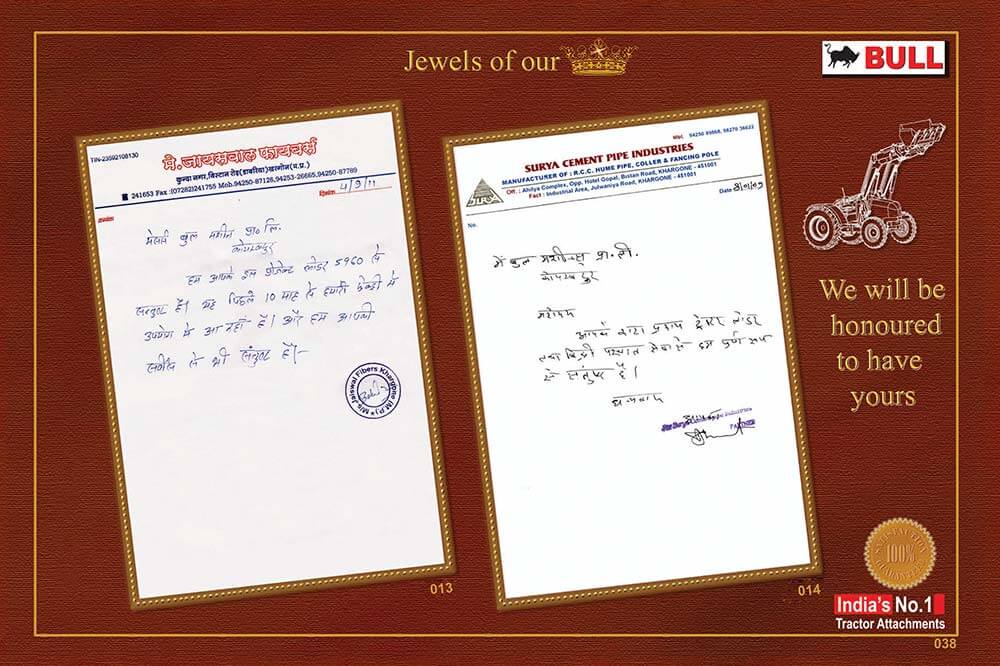 Jewels of our
BULL
TIN-23592108130
मे. जायसवाल फायबर्स
कुन्दा नगर, बिस्टान रोड़ (डाबरिया) खरगोन (म.प्र.)
241653 Fax :(07282)241755 Mob.94250-87128, 94253-26665, 94250-87789
दिनांक 4/9/11
मेसर्स बुल मशीन प्रा० लि.
कोयम्बटूर
हम आपके इस प्रोजेक्ट लोडर 5960 से
संतुष्ट हैं। यह पिछले 10 माह से हमारी फेक्ट्री मे
उपयोग मे आ रहा है। और हम आपकी
सर्विस से भी संतुष्ट हैं।-
M/s.Jaiswal Fibers Khargone (M.P.)
013
Mob. 94250 89068, 98270 36623
SURYA CEMENT PIPE INDUSTRIES
MANUFACTURER OF : R.C.C. HUME PIPE, COLLER & FANCING POLE
Off. : Ahilya Complex, Opp. Hotel Gopal, Bistan Road, KHARGONE - 451001
Fact : Industrial Area, Julwaniya Road, KHARGONE - 451001
No.
Date
में बुल मशीन्स प्रा. ली.
कोयम्बटुर
महोदय
आपके द्वारा प्रदाय ट्रेक्टर लोडर
तथा बिक्री पश्चात सेवा से हम पुर्ण रूप
से संतुष्ट है।
धन्यवाद
PARTNER
014
We will be
honoured
to have
yours
SATISFACTION
100%
GUARANTEED
India's No.1
Tractor Attachments
038